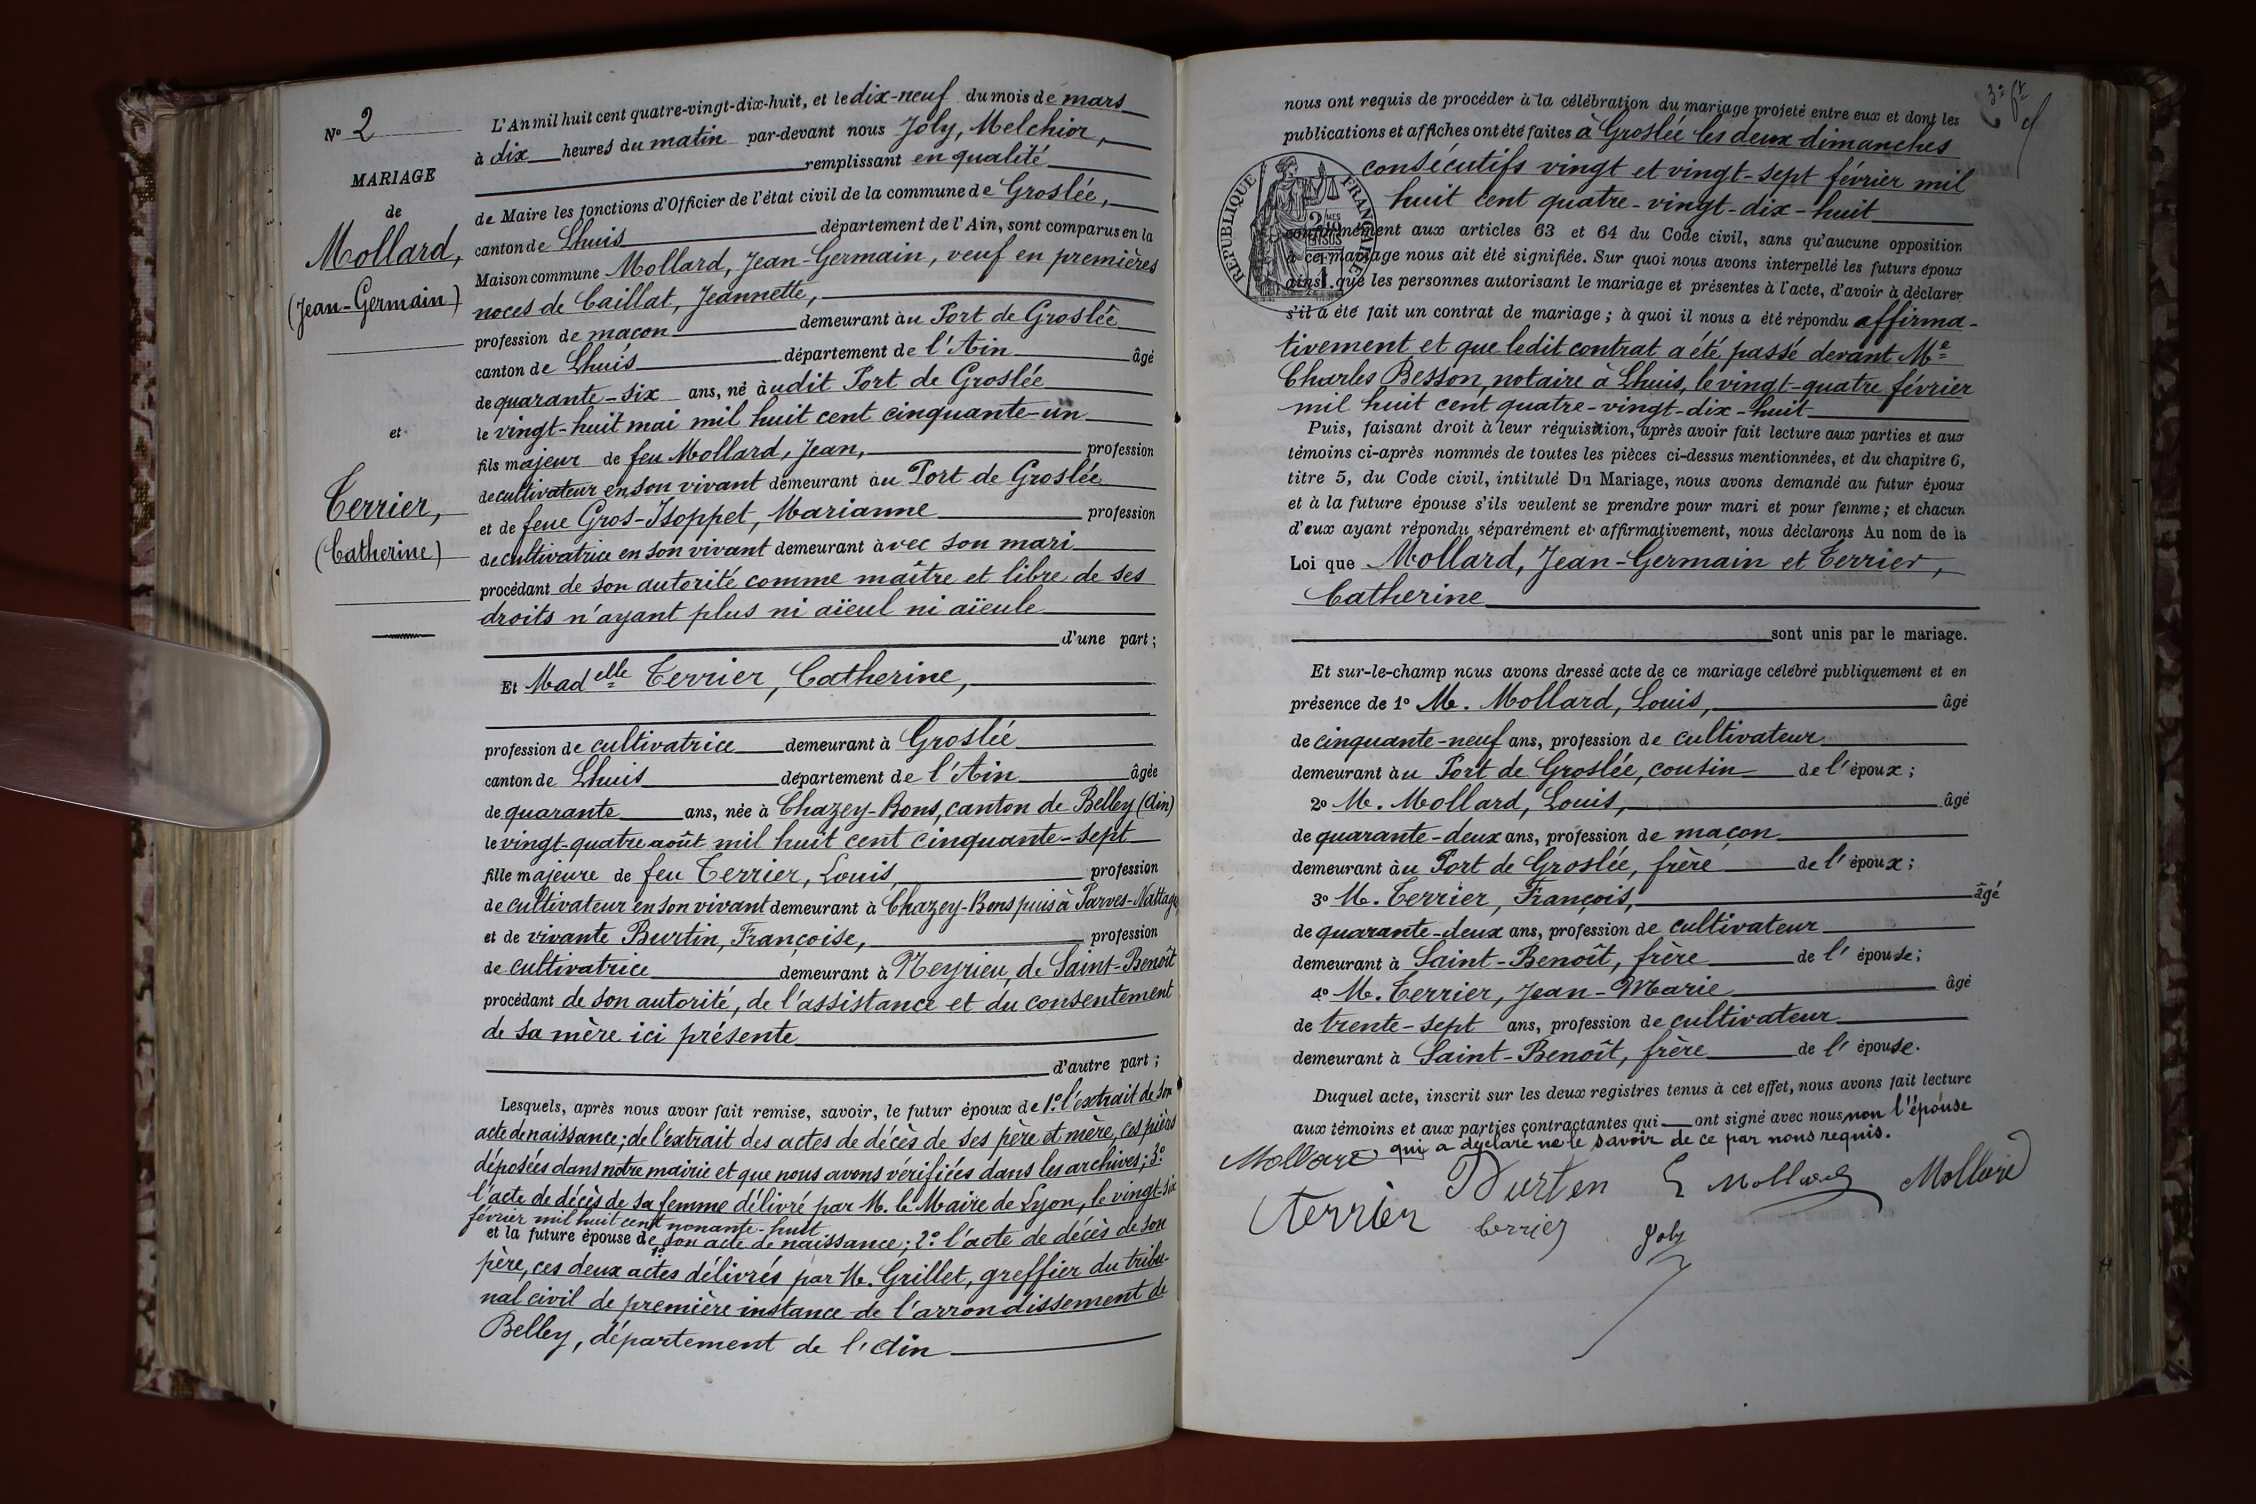 N° 2
MARIAGE
de
Mollard,
(Jean-Germain)
et
Terrier,
(Catherine)
L'An mil huit cent quatre-vingt-dix-huit, et le dix-neuf du mois de mars
à dix heures du matin par-devant nous Joly, Melchior,
remplissant en qualité
de Maire les fonctions d'Officier de l'état civil de la commune de Groslée,
canton de Lhuis département de l'Ain, sont comparus en la
Maison commune Mollard, Jean-Germain, veuf en premières
noces de Caillat, Jeannette,
profession de maçon demeurant au Port de Groslée
canton de Lhuis département de l'Ain âgé
de quarante-six ans, né audit Port de Groslée
le vingt-huit mai mil huit cent cinquante-un
fils majeur de feu Mollard, Jean, profession
de cultivateur en son vivant demeurant au Port de Groslée
et de feue Gros-Isoppet, Marianne profession
de cultivatrice en son vivant demeurant avec son mari
procédant de son autorité comme maître et libre de ses
droits n'ayant plus ni aïeul ni aïeule
d'une part ;
Et Madelle Terrier, Catherine,
profession de cultivatrice demeurant à Groslée
canton de Lhuis département de l'Ain âgée
de quarante ans, née à Chazey-Bons, canton de Belley (Ain)
le vingt-quatre août mil huit cent cinquante-sept
fille majeure de feu Terrier, Louis, profession
de cultivateur en son vivant demeurant à Chazey-Bons puis à Parves-Nattages
et de vivante Burtin, Françoise, profession
de cultivatrice demeurant à Neyrieu, de Saint-Benoît
procédant de son autorité, de l'assistance et du consentement
de sa mère ici présente
d'autre part ;
Lesquels, après nous avoir fait remise, savoir, le futur époux de 1° l'extrait de son
acte de naissance ; de l'extrait des actes de décès de ses père et mère, ces pièces
déposées dans notre mairie et que nous avons vérifiées dans les archives ; 3°
l'acte de décès de sa femme délivré par M. le Maire de Lyon, le vingt-six
février mil huit cent nonante-huit
et la future épouse de 1° son acte de naissance ; 2° l'acte de décès de son
père, ces deux actes délivrés par M. Grillet, greffier du tribu-
nal civil de première instance de l'arrondissement de
Belley, département de l'Ain
nous ont requis de procéder à la célébration du mariage projeté entre eux et dont les
publications et affiches ont été faites à Groslée les deux dimanches
consécutifs vingt et vingt-sept février mil
huit cent quatre-vingt-dix-huit
RÉPUBLIQUE FRANÇAISE
conformément aux articles 63 et 64 du Code civil, sans qu'aucune opposition
à ce mariage nous ait été signifiée. Sur quoi nous avons interpellé les futurs époux
ainsi que les personnes autorisant le mariage et présentes à l'acte, d'avoir à déclarer
s'il a été fait un contrat de mariage ; à quoi il nous a été répondu affirma-
tivement et que ledit contrat a été passé devant Me
Charles Besson, notaire à Lhuis, le vingt-quatre février
mil huit cent quatre-vingt-dix-huit
Puis, faisant droit à leur réquisition, après avoir fait lecture aux parties et aux
témoins ci-après nommés de toutes les pièces ci-dessus mentionnées, et du chapitre 6,
titre 5, du Code civil, intitulé Du Mariage, nous avons demandé au futur époux
et à la future épouse s'ils veulent se prendre pour mari et pour femme ; et chacun
d'eux ayant répondu séparément et affirmativement, nous déclarons Au nom de la
Loi que Mollard, Jean-Germain et Terrier,
Catherine
sont unis par le mariage.
Et sur-le-champ nous avons dressé acte de ce mariage célébré publiquement et en
présence de 1° M. Mollard, Louis, âgé
de cinquante-neuf ans, profession de cultivateur
demeurant au Port de Groslée, cousin de l'époux ;
2° M. Mollard, Louis, âgé
de quarante-deux ans, profession de maçon
demeurant au Port de Groslée, frère de l'époux ;
3° M. Terrier, François, âgé
de quarante-deux ans, profession de cultivateur
demeurant à Saint-Benoît, frère de l'épouse ;
4° M. Terrier, Jean-Marie âgé
de trente-sept ans, profession de cultivateur
demeurant à Saint-Benoît, frère de l'épouse.
Duquel acte, inscrit sur les deux registres tenus à cet effet, nous avons fait lecture
aux témoins et aux parties contractantes qui ont signé avec nous, non l'épouse
qui a déclaré ne le savoir de ce par nous requis.
Mollard Burten L Mollard Mollard
terrier terrier Joly